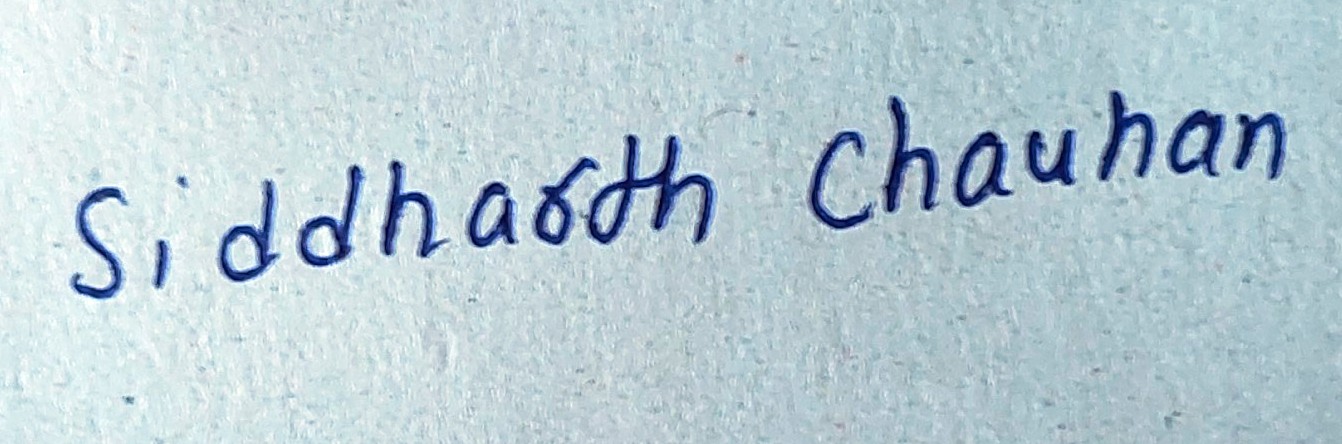 Siddharth Chauhan